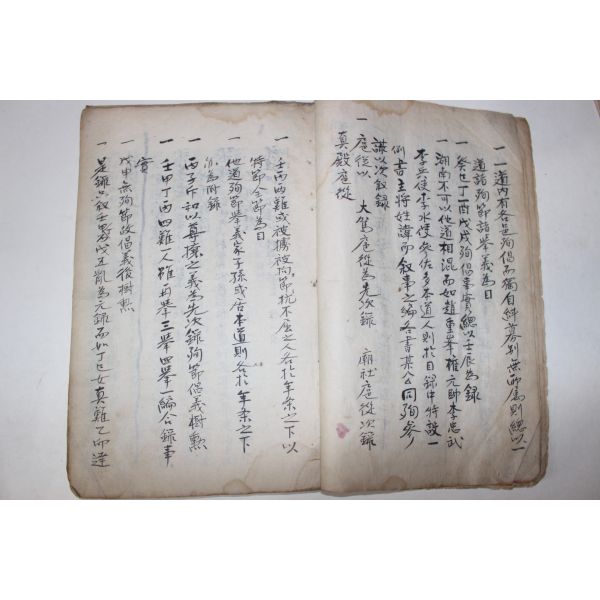 一道內有各邑殉倡而獨自糾募別無所屬則總以一
道諸殉節諸擧義爲目
一癸巳丁酉戊戌殉倡事實總以壬辰爲錄
一湖南不可以他道相混而如趙重峯權元帥李忠武
李兵使李水使癸佐多本道人則於目錄中特設一
例書主將姓諱而敘事之編各書某公同殉參
謀以次敘錄
一扈從以 大駕扈從爲先次錄 廟社扈從次錄
眞殿扈從
一壬丙兩難或被擄被拘節抗不屈之人各於年条之下以
特節全節爲目
一他道殉節擧義家子孫或居本道則各於年条之下
以爲附錄
一丙子斥和以眞攘之義爲先次錄殉節倡義樹勲
一壬甲丁丙四難一人雖再擧三擧四擧一編合錄事
實
一戊申無殉節故倡義後樹勲
一是錄只敘壬 戊五亂爲元錄而如丁巳女眞難乙而達